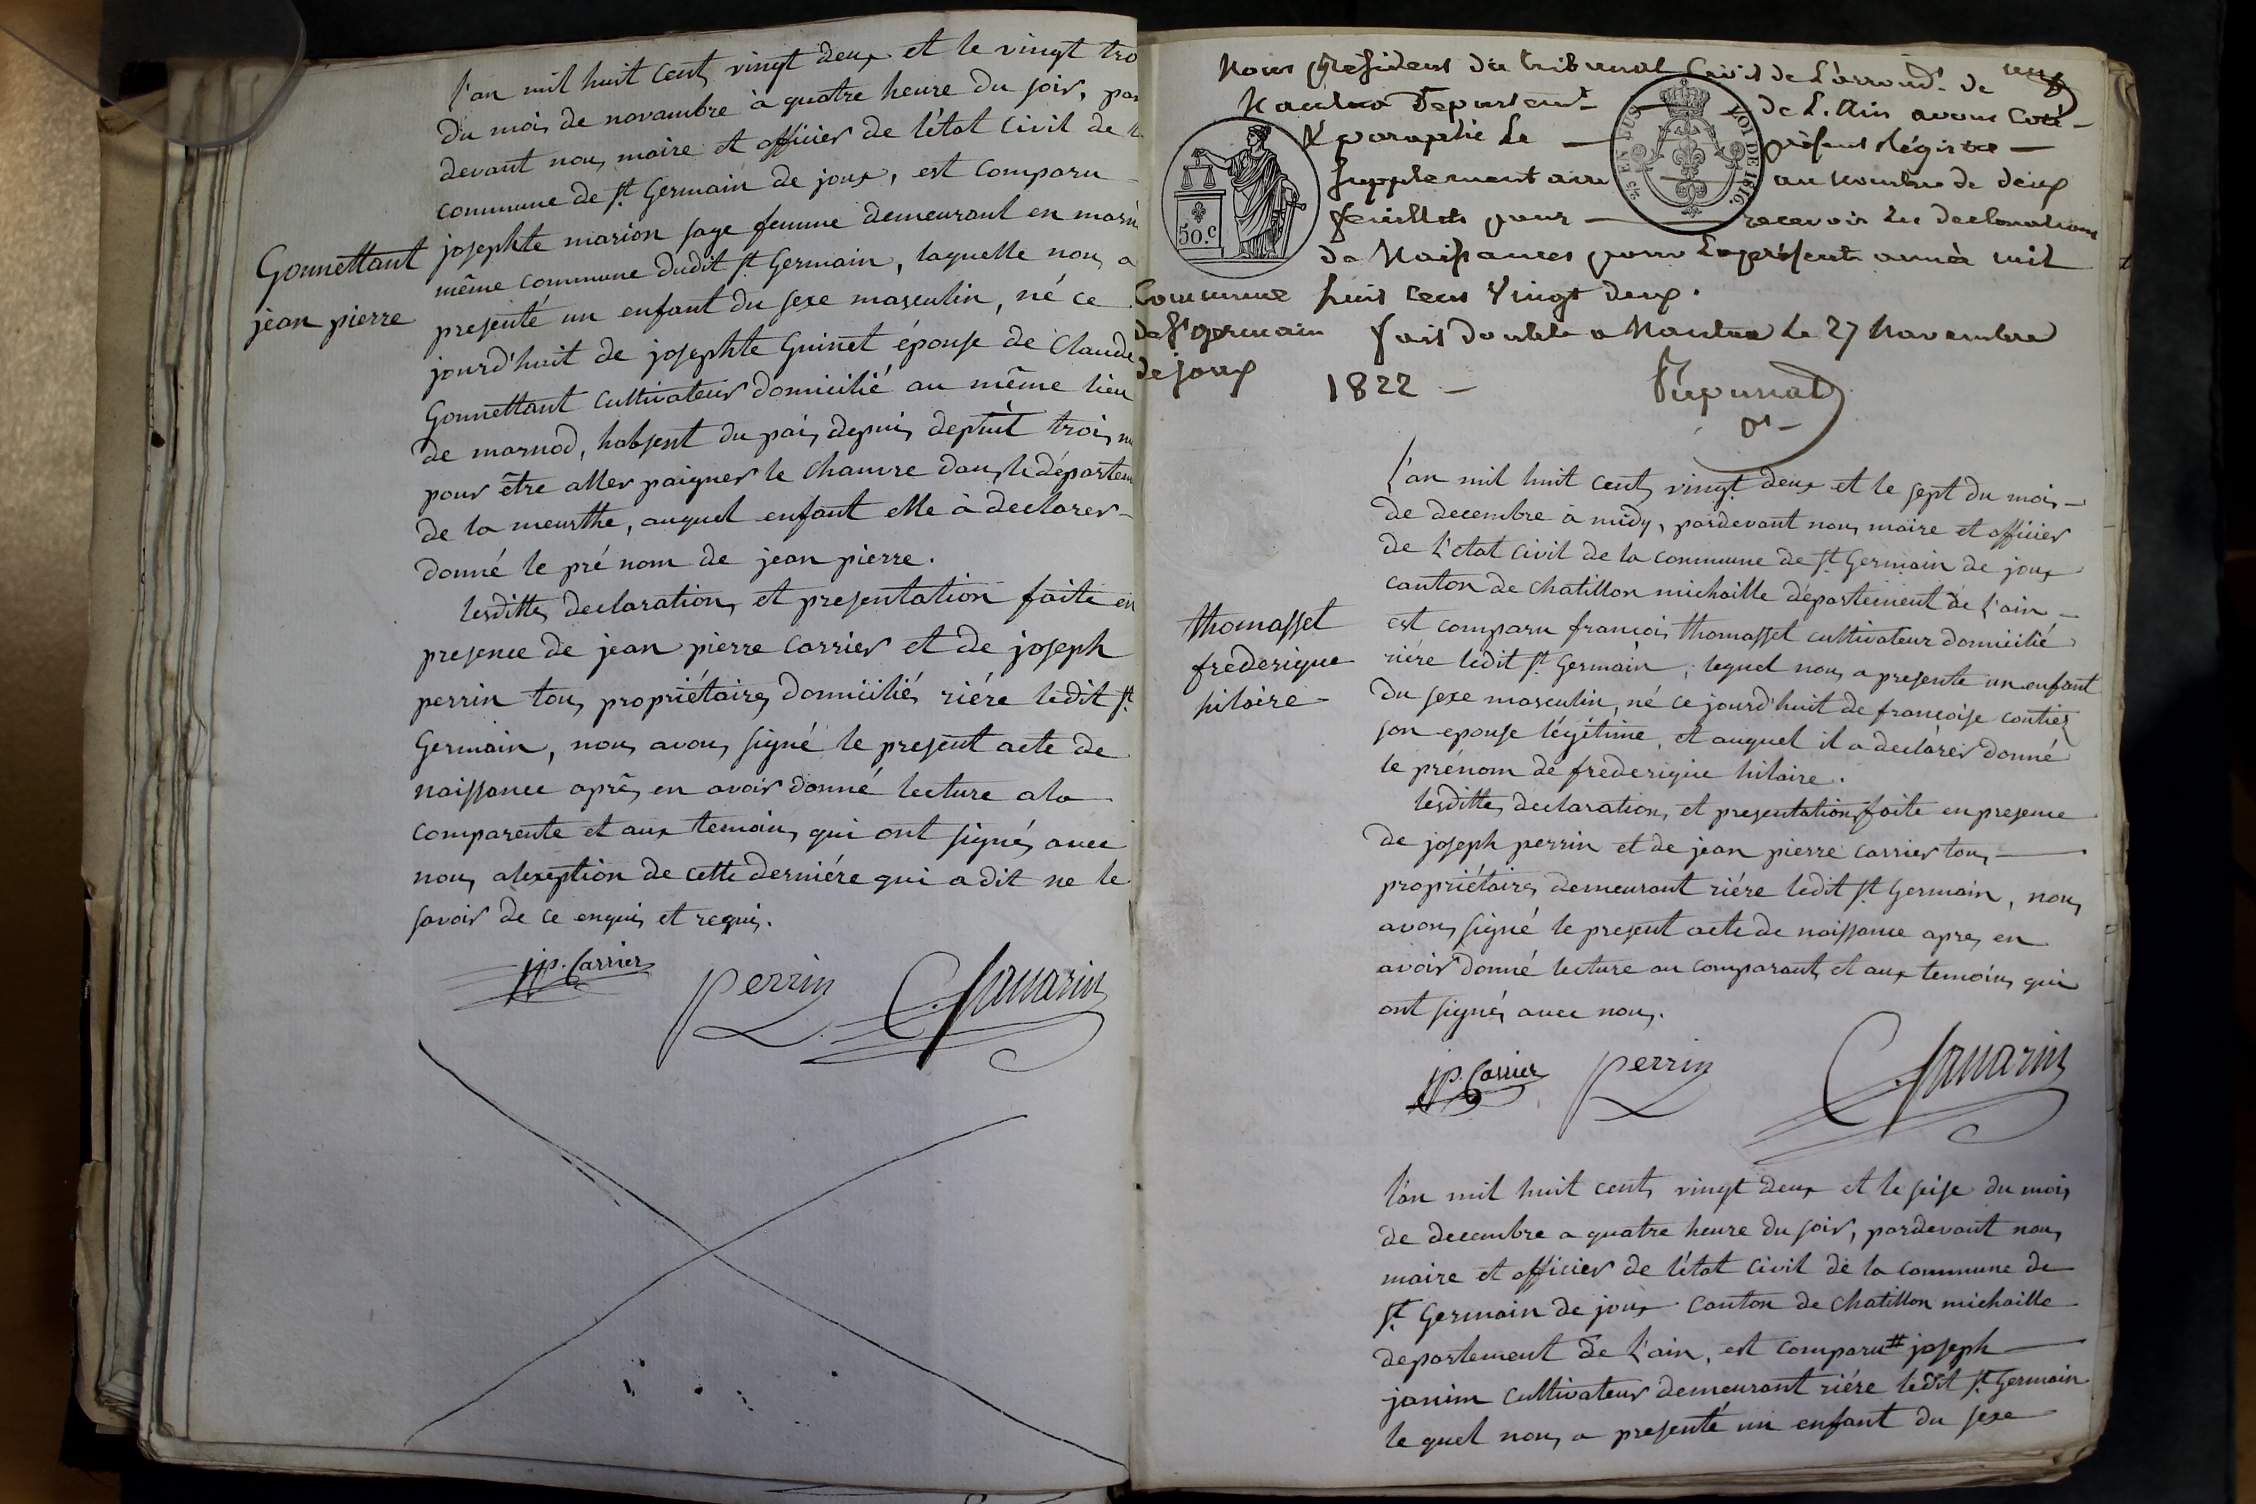 l'an mil huit cent vingt deux et le vingt tro
du mois de novambre à quatre heure du soir, par
devant nous maire et officier de l'état civil de
commune de st. Germain de joux, est comparu
josephte marion sage femme demeurant en marn
même commune dudit st. Germain, laquelle nous a
presenté un enfant du sexe masculin, né ce
jourd'huit de josephte Guinet épouse de Claude
Gonnettant cultivateur domicilié au même lieu
de marnod, habsent du pais depuis deptuit trois
pour être aller paigner le chanvre dans le départem
de la meurthe, auquel enfant elle à declarer
donné le pré nom de jean pierre.
lesdittes declarations et presentation faite en
presence de jean pierre carrier et de joseph
perrin tous propriétaires domiciliés riére ledit st.
Germain, nous avons signé le present acte de
naissance aprês en avoir donné lecture a la
comparente et aux temoins qui ont signés avec
nous alexeption de cette derniére qui a dit ne le
savoir de ce enquis et requis.
Gonnettant
jean pierre
jp. Carrier perrin C. Savarin
Nous président du tribunal Civil de l'arrondt. de
Nantua Département de L'Ain avons Coté
& paraphé le présent Régistre
Supplementaire au nombre de deux
feuillets pour recevoir les declarations
de Naissances pour la présente année mil
huit cent Vingt deux.
Commune
de St germain
de joux
fait double a Nantua le 27 Novembre
1822
50.c
EN SUS
LOI DE 1816.
l'an mil huit cent vingt deux et le sept du mois
de decembre à midy, pardevant nous maire et officier
de l'état civil de la commune de st. Germain de joux
canton de chatillon michaille département de l'ain
est comparu francois thomasset cultivateur domicilié
riére ledit st. Germain, lequel nous a presente un enfant
du sexe masculin, né ce jourd'huit de francoise contier
son epouse légitime, et auquel il a declarer donné
le prénom de frederique hilaire.
lesdittes declarations et presentation faite en presence
de joseph perrin et de jean pierre carrier tous
propriétaires demeurant riére ledit st. Germain, nous
avons signé le present acte de naissance apres en
avoir donné lecture au comparant et aux temoins qui
ont signés avec nous.
thomasset
fréderique
hilaire
jp. Carrier perrin C. Savarin
l'an mil huit cent vingt deux et le seise du mois
de decembre a quatre heure du soir, pardevant nous
maire et officier de l'état civil de la commune de
st. Germain de joux canton de chatillon michaille
departement de l'ain, est comparu # joseph
janim cultivateur demeurant riére ledit st. Germain
le quel nous a presenté un enfant du sexe